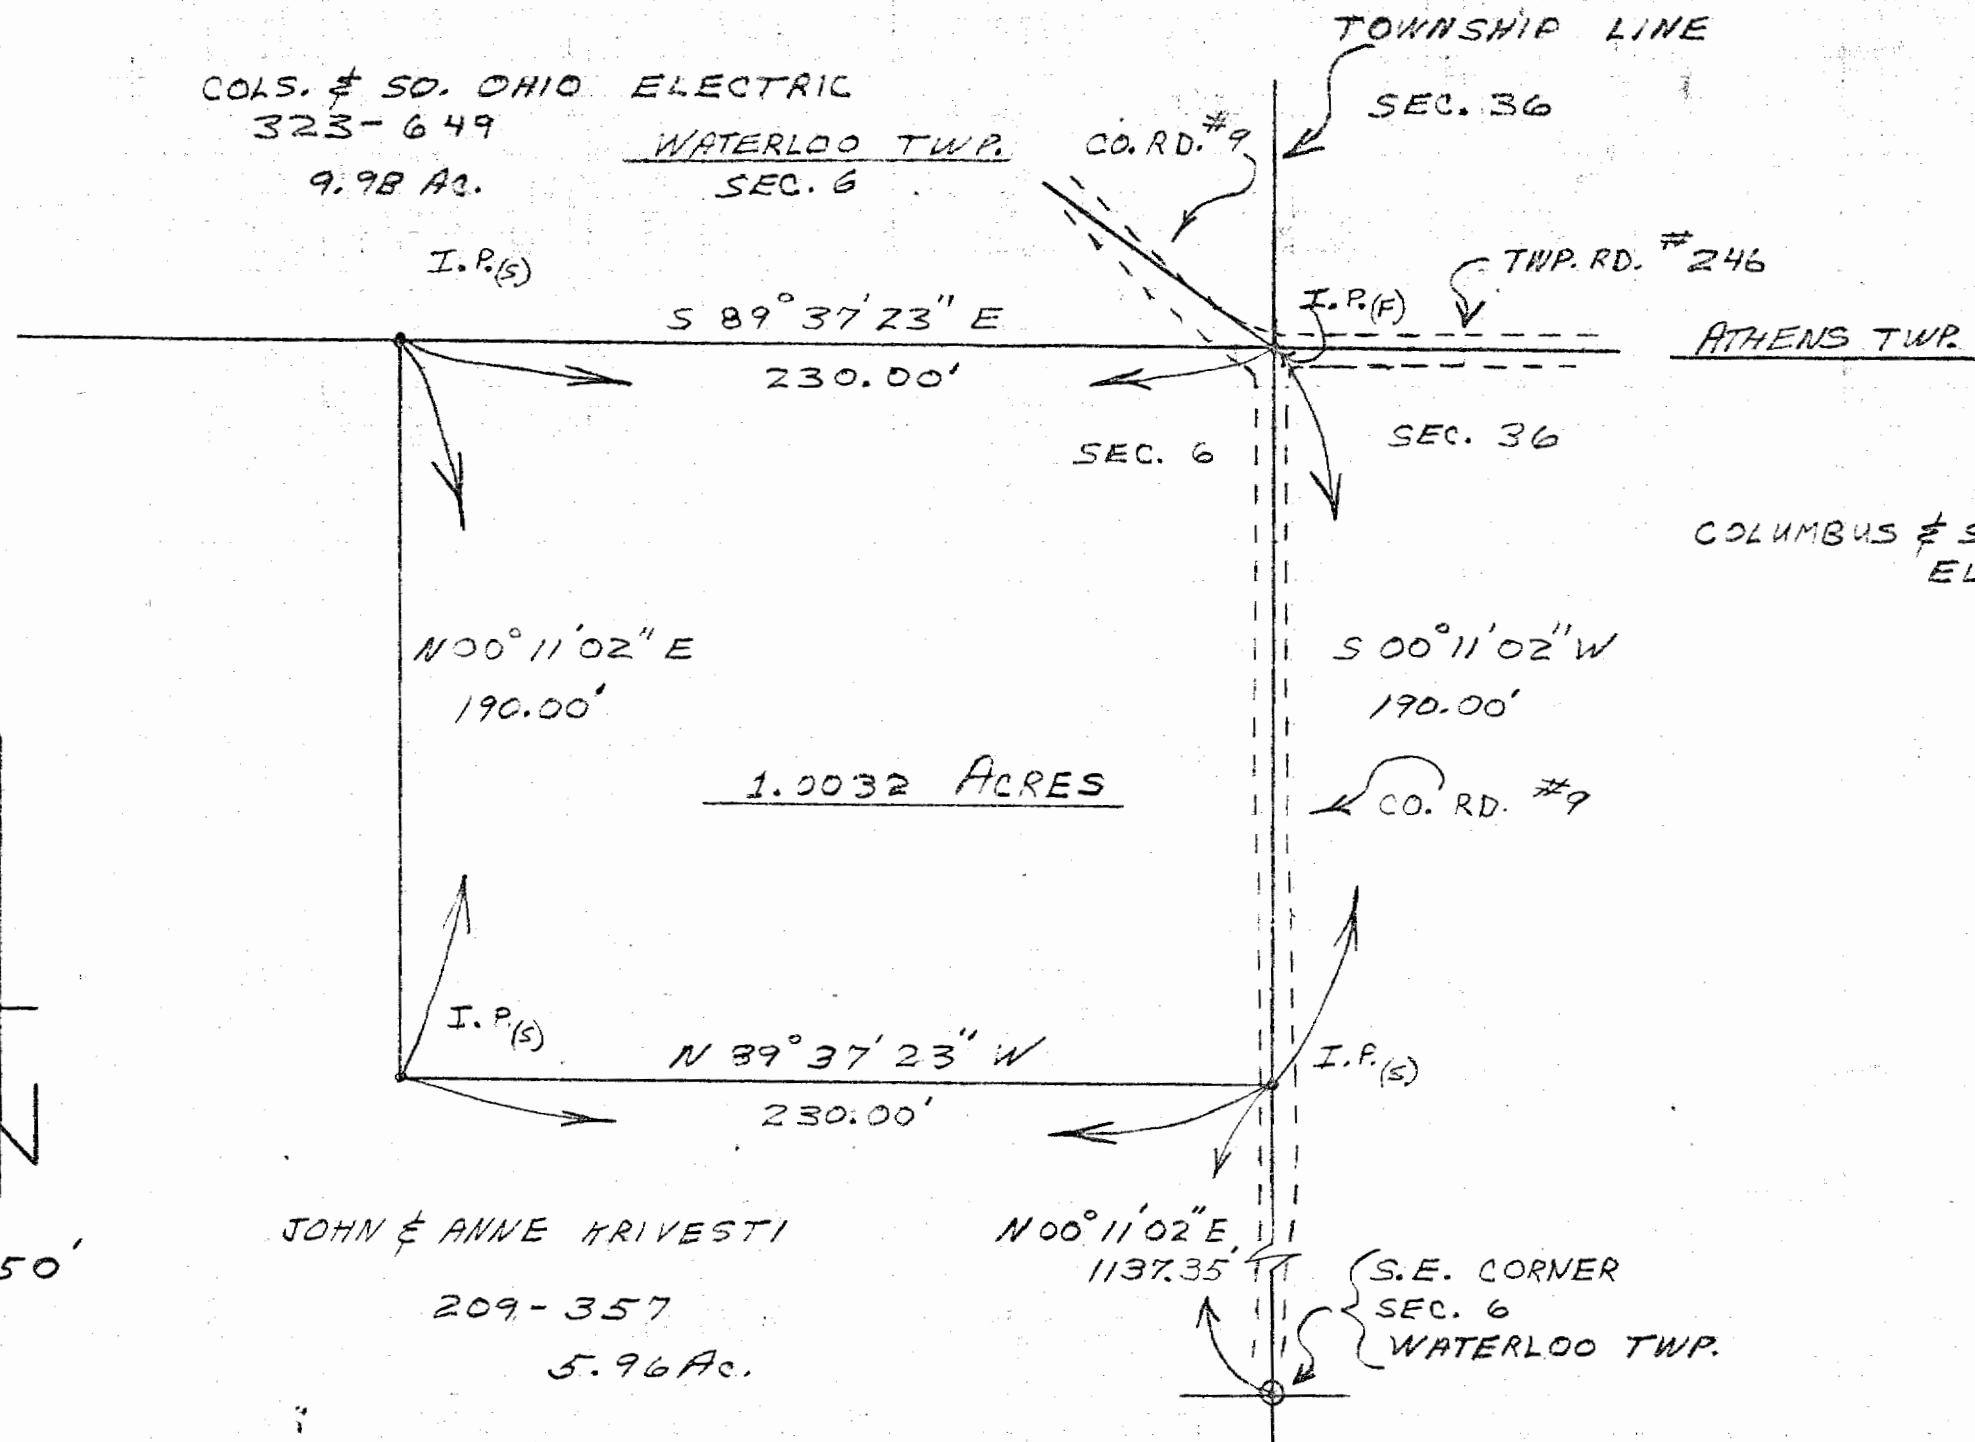 TOWNSHIP LINE
COLS. & SO. OHIO ELECTRIC
323-649
9.98 AC.
WATERLOO TWP.
SEC. 6
CO. RD. #9
SEC. 36
I.P.(S)
TWP. RD. #246
I.P.(F)
S 89° 37' 23" E
230.00'
ATHENS TWP.
SEC. 6
SEC. 36
COLUMBUS & S
EL
N 00° 11' 02" E
190.00'
S 00° 11' 02" W
190.00'
1.0032 ACRES
CO. RD. #9
I.P.(S)
N 89° 37' 23" W
230.00'
I.P.(S)
JOHN & ANNE KRIVESTI
209-357
5.96 Ac.
N 00° 11' 02" E
1137.35'
S.E. CORNER
SEC. 6
WATERLOO TWP.
50'